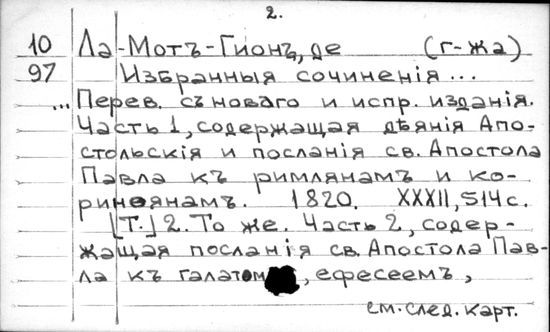 2.
10 Ла-Мотъ-Гионъ, де (г-жа)
97 Избранныя сочиненія ...
... Перев. съ новаго и испр. изданія.
Часть 1, содержащая дѣянія Апо-
стольскія и посланія св. Апостола
Павла къ римлянамъ и ко-
ринѳянамъ. 1820. XXXII, 514 с.
[Т.] 2. То же. Часть 2, содер-
жащая посланія св. Апостола Пав-
ла къ галатом , ефесеемъ,
см. след. карт.